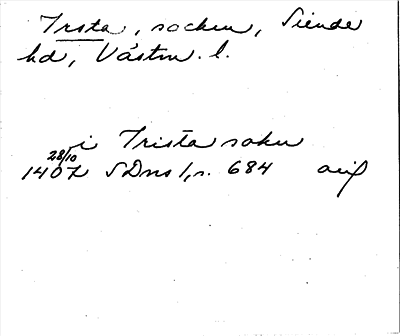 Irsta, socken, Siende
hd, Västm. l.
i Trista sokn
28/10
1407 SDns 1, s. 684 avif